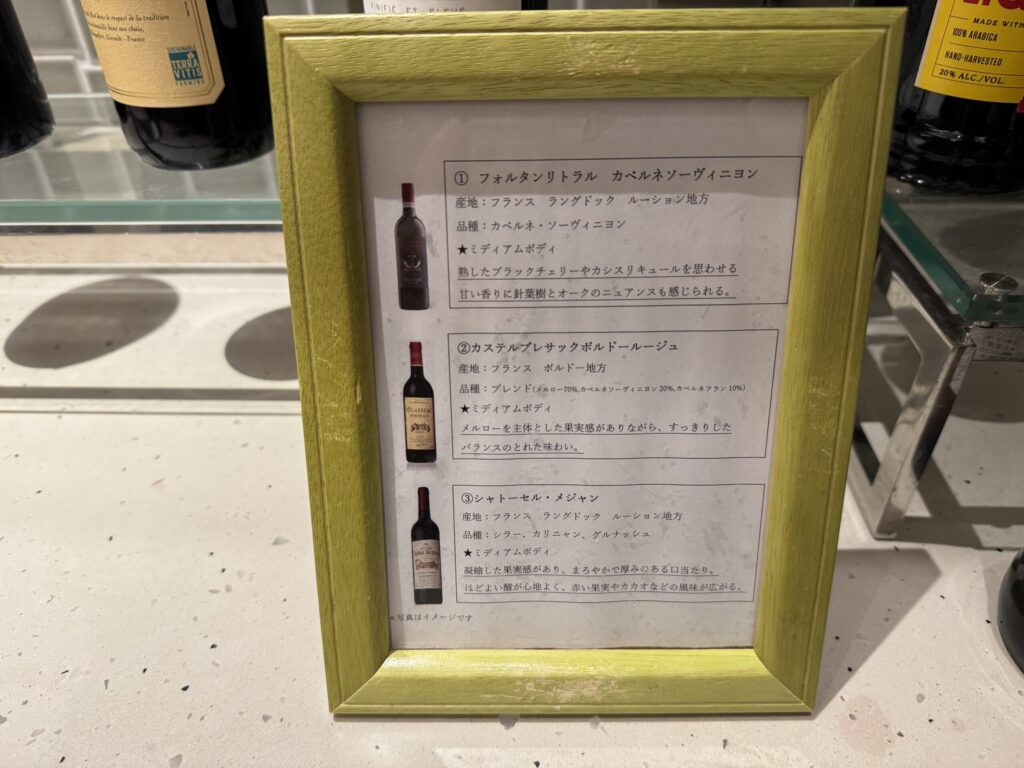 VINIFIÉ ET ÉLEVÉ
dans le respect de la tradition
dans nos chais,
Gironde - France
SUSTAINABLE
TERRA
VITIS
FARMING
MADE WITH
100% ARABICA
HAND-HARVESTED
20% ALC./VOL.
① フォルタンリトラル カベルネソーヴィニヨン
産地：フランス ラングドック ルーション地方
品種：カベルネ・ソーヴィニヨン
★ミディアムボディ
熟したブラックチェリーやカシスリキュールを思わせる
甘い香りに針葉樹とオークのニュアンスも感じられる。
②カステルブレサックボルドールージュ
産地：フランス ボルドー地方
品種：ブレンド(メルロー70%,カベルネソーヴィニヨン20%,カベルネフラン10%)
★ミディアムボディ
メルローを主体とした果実感がありながら、すっきりした
バランスのとれた味わい。
③シャトーセル・メジャン
産地：フランス ラングドック ルーション地方
品種：シラー、カリニャン、グルナッシュ
★ミディアムボディ
凝縮した果実感があり、まろやかで厚みのある口当たり。
ほどよい酸が心地よく、赤い果実やカカオなどの風味が広がる。
*写真はイメージです